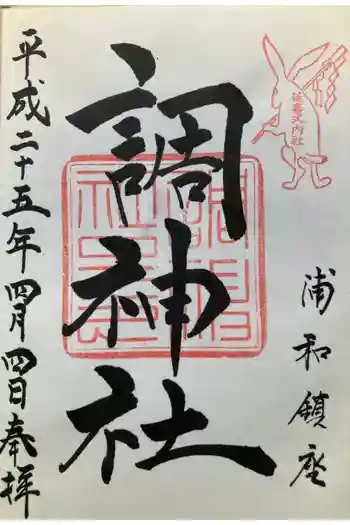 延喜式内社
浦和鎮座
調神社
平成二十五年四月四日奉拝